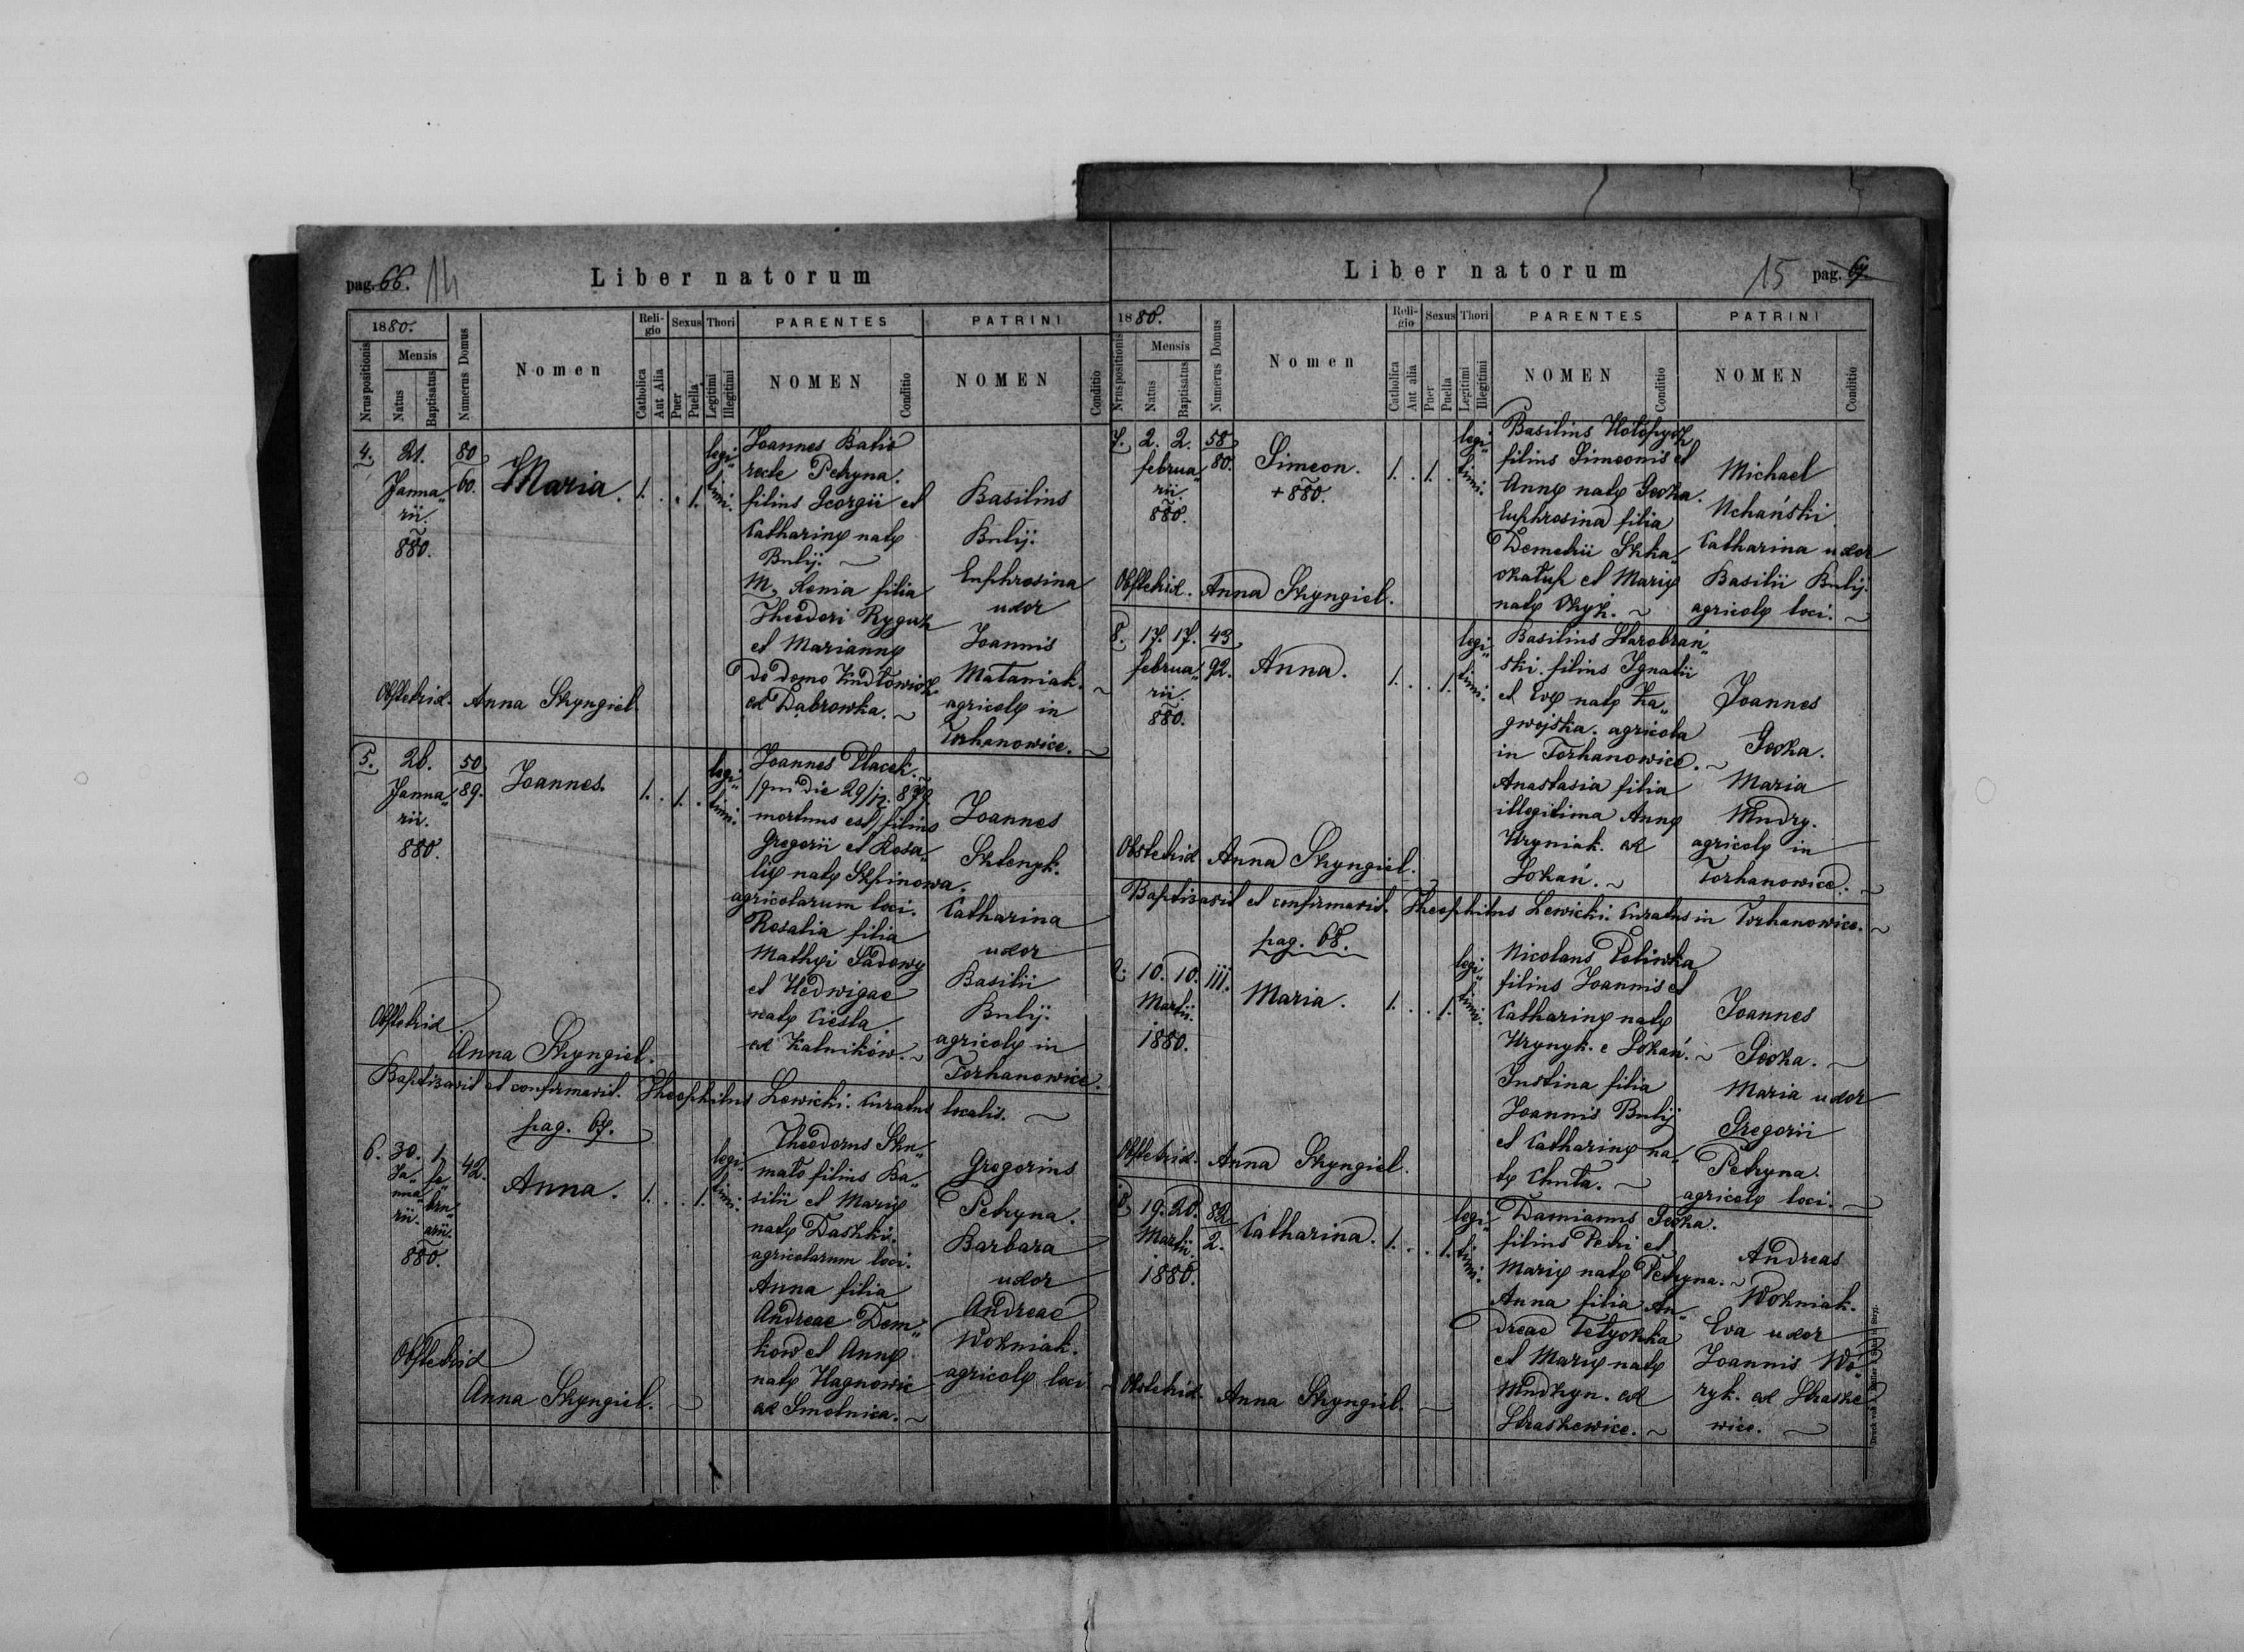 pag. 66. 14
Liber natorum
1880.
Nrus positionis
Mensis
Natus
Baptisatus
Numerus Domus
Nomen
Religio
Catholica
Aut Alia
Sexus
Puer
Puella
Thori
Legitimi
Illegitimi
PARENTES
NOMEN
Conditio
PATRINI
NOMEN
Conditio
4. 21.
Janua„
rii.
880.
80
60.
Maria.
1. . . 1.
legi„
timi.
Joannes Batio
recte Petryna.
filius Georgii et
Catharinę natę
Bulij.
M, Xenia filia
Theodori Ryguk
et Mariannę
de domo Kudłowicz
ex Dąbrowka.
Basilius
Bulij.
Euphrosina
uxor
Joannis
Mataniak.
agricolę in
Torhanowice.
Obstetrix. Anna Skyngiel.
5. 26.
Janua„
rii.
880.
50
89.
Joannes.
1. . 1. .
legi„
timi.
Joannes Placek.
/qui die 29/12. 879
mortuus est/ filius
Gregorii et Rosa„
lię natę Skpinowa.
agricolarum loci.
Rosalia filia
Mathęi Sadowy
et Hedwigae
natę Ciesla.
ex Kalników.
Joannes
Sklenyk.
Catharina
uxor
Basilii
Bulij.
agricolę in
Torhanowice.
Obstetrix.
Anna Skyngiel.
Baptisavit et confirmavit. Theophilus Lewicki. Curatus localis.
pag. 67.
6. 30. 1.
Ja„ fe„
nua„ bru„
rii. arii.
880.
42.
Anna.
1. . . 1.
legi„
timi.
Theodorus Sku„
mato filius Ba„
silii et Marię
natę Daskko.
agricolarum loci.
Anna filia
Andreae Dem„
kow et Annę
natę Hagnowic
ex Smolnica.
Gregorius
Petryna.
Barbara
uxor
Andreae
Wozniak.
agricolę loci
Obstetrix
Anna Skyngiel.
Liber natorum
15 pag. 67
1880.
Nrus positionis
Mensis
Natus
Baptisatus
Numerus Domus
Nomen
Religio
Catholica
Aut alia
Sexus
Puer
Puella
Thori
Legitimi
Illegitimi
PARENTES
NOMEN
Conditio
PATRINI
NOMEN
Conditio
7. 2. 2.
februa„
rii.
880.
58
80.
Simeon.
+ 880.
1. . 1. .
legi„
timi.
Basilius Hołopych
filius Simeonis et
Annę natę Gocka.
Euphrosina filia
Demetrii
et Marię
natę
Michael
Uchański
Catharina uxor
Basilii Bulij.
agricolę loci.
Obstetrix. Anna Skyngiel.
8. 17. 17.
februa„
rii.
880.
43
92.
Anna.
1. . . 1.
legi„
timi.
Basilius Starobrań„
ski filius Ignatii
et Evę natę Za„
gwojska. agricola
in Torhanowice.
Anastasia filia
illegitima Annę
Hryniak. ex
Lokań.
Joannes
Gocka.
Maria
Mudry.
agricolę in
Torhanowice.
Obstetrix Anna Skyngiel.
Baptisavit et confirmavit. Theophilus Lewicki. Curatus in Torhanowice.
pag. 68.
9. 10. 10.
Martii.
1880.
111.
Maria.
1. . . 1.
legi„
timi.
Nicolaus Poliwka
filius Joannis et
Catharinę natę
Hrynyk. e Lokań.
Justina filia
Joannis Bulij
et Catharinę na„
tę Chuta.
Joannes
Gocka.
Maria uxor
Gregorii
Petryna.
agricolę loci.
Obstetrix. Anna Skyngiel.
19. 20.
Martii.
1880.
82
2.
Catharina.
1. . . 1.
legi„
timi.
Damianus Gocka.
filius Petri et
Marię natę Petryna.
Anna filia An„
dreae Tetyczka
et Marię natę
Mudryn. ex
Straszewice.
Andreas
Wozniak.
Eva uxor
Joannis Wo„
ryk. ex Strasze
wice.
Obstetrix Anna Skyngiel.